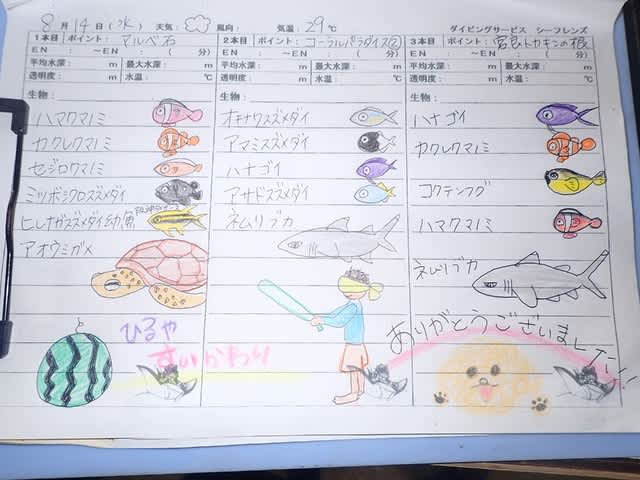 8月14日(水) 天気: 風向: 気温: 29℃ ダイビングサービス シーフレンズ
1本目 ポイント: マルベ石
EN : ～EN : ( 分)
平均水深: m 最大水深: m
透明度: m 水温: ℃
生物:
ハマクマノミ
カクレクマノミ
セジロクマノミ
ミツボシクロスズメダイ
ヒレナガスズメダイ幼魚
アオウミガメ
2本目 ポイント: コーラルパラダイス②
EN : ～EN : ( 分)
平均水深: m 最大水深: m
透明度: m 水温: ℃
生物:
オキナワスズメダイ
アマミスズメダイ
ハナゴイ
アサドスズメダイ
ネムリブカ
3本目 ポイント: 宮良トカキンの根
EN : ～EN : ( 分)
平均水深: m 最大水深: m
透明度: m 水温: ℃
生物:
ハナゴイ
カクレクマノミ
コクテンフグ
ハマクマノミ
ネムリブカ
ひるや
すいかわり
ありがとうございました